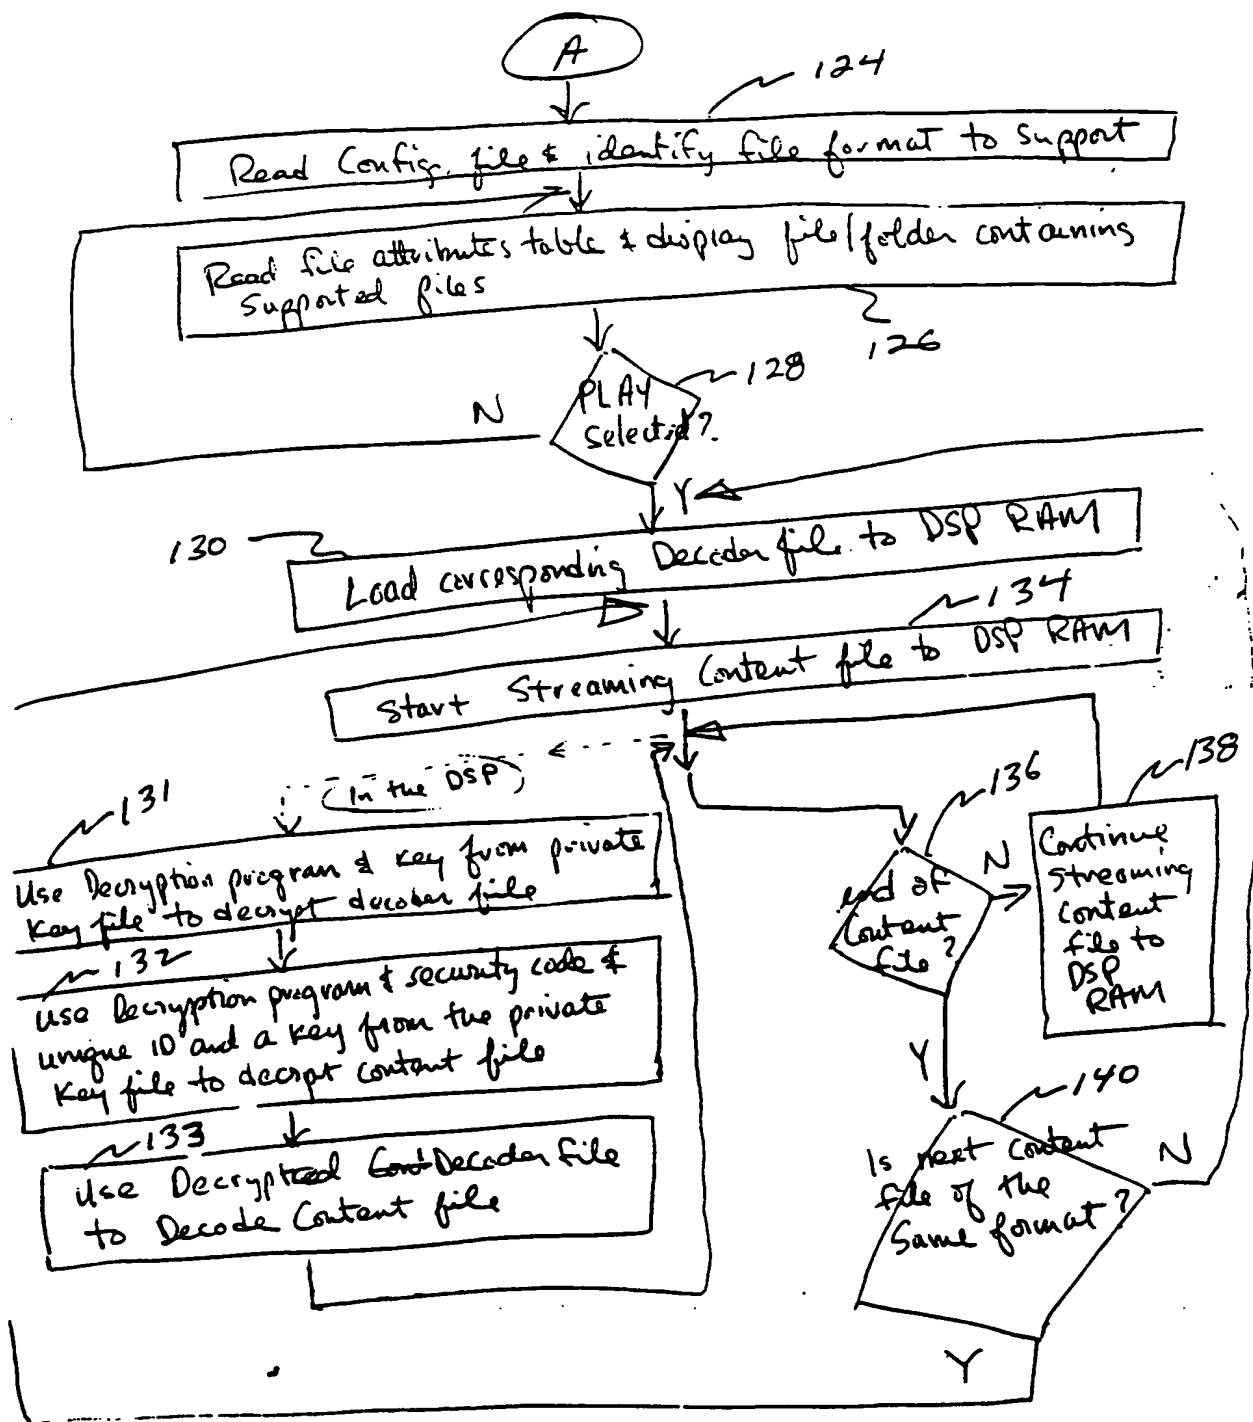 A
124
Read Config. file & identify file format to support
Read file attributes table & display file/folder containing
supported files
126
128
PLAY
selected?
N
Y
130
Load corresponding Decoder file to DSP RAM
134
Start Streaming Content file to DSP RAM
(In the DSP)
131
Use Decryption program & key from private
key file to decrypt decoder file
132
Use Decryption program & security code &
unique ID and a key from the private
key file to decrypt content file
133
Use Decrypted Decoder file
to Decode Content file
136
end of
Content
file?
N
138
Continue
streaming
content
file to
DSP
RAM
Y
140
Is next content
file of the
same format?
N
Y